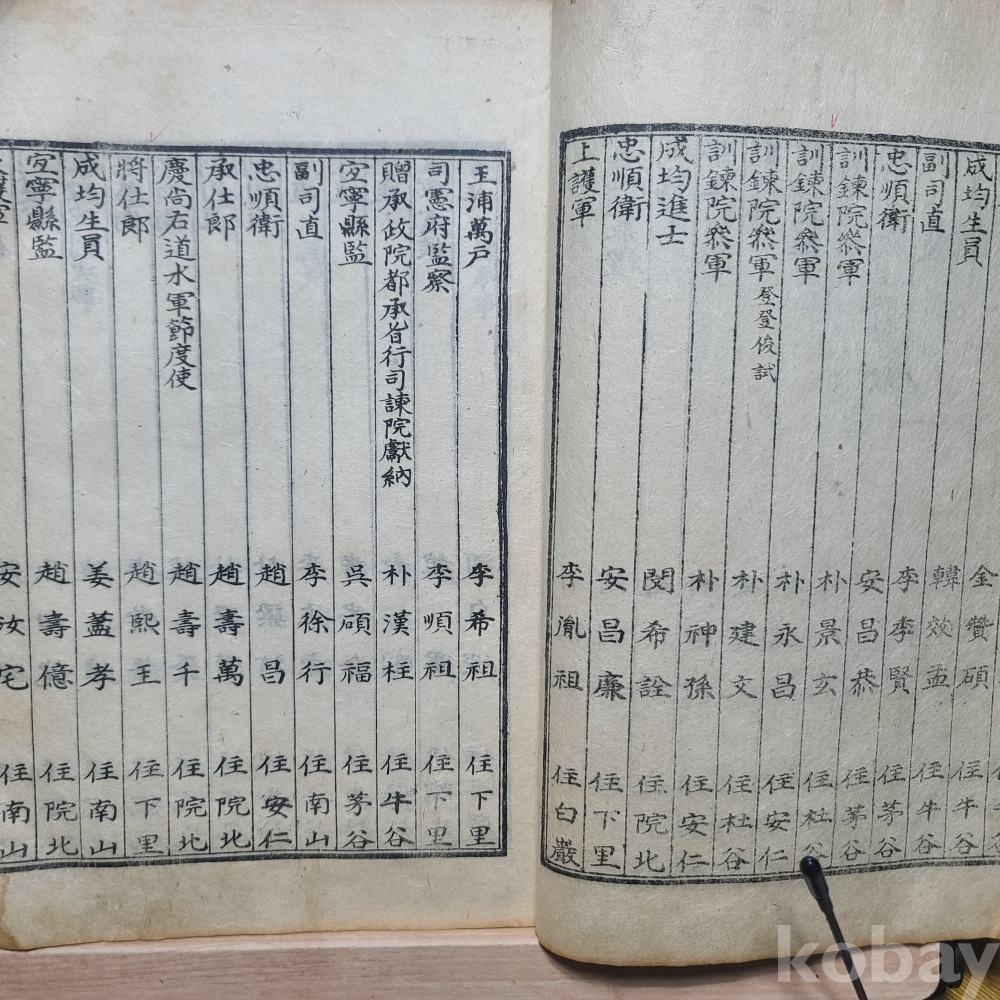 成均生員 金纘碩 住牛谷
副司直 韓效孟 住牛谷
忠順衛 李季賢 住茅谷
訓鍊院叅軍 安昌恭 住茅谷
訓鍊院叅軍 朴景玄 住杜谷
訓鍊院叅軍 朴永昌 住安仁
訓鍊院叅軍 登登俊試 朴建文 住杜谷
訓鍊院叅軍 朴神孫 住安仁
成均進士 閔希詮 住院北
忠順衛 安昌廉 住下里
上護軍 李胤祖 住白巖
玉浦萬戶 李希祖 住下里
司憲府監察 李順祖 住下里
贈承政院都承旨行司諫院獻納 朴漢柱 住牛谷
宜寧縣監 吳碩福 住茅谷
副司直 李徐行 住南山
忠順衛 趙壽昌 住安仁
承仕郎 趙壽萬 住院北
慶尙右道水軍節度使 趙壽千 住院北
將仕郎 趙熙玉 住下里
成均生員 姜藎孝 住南山
宜寧縣監 趙壽億 住院北
安汝宅 住南山
kobay